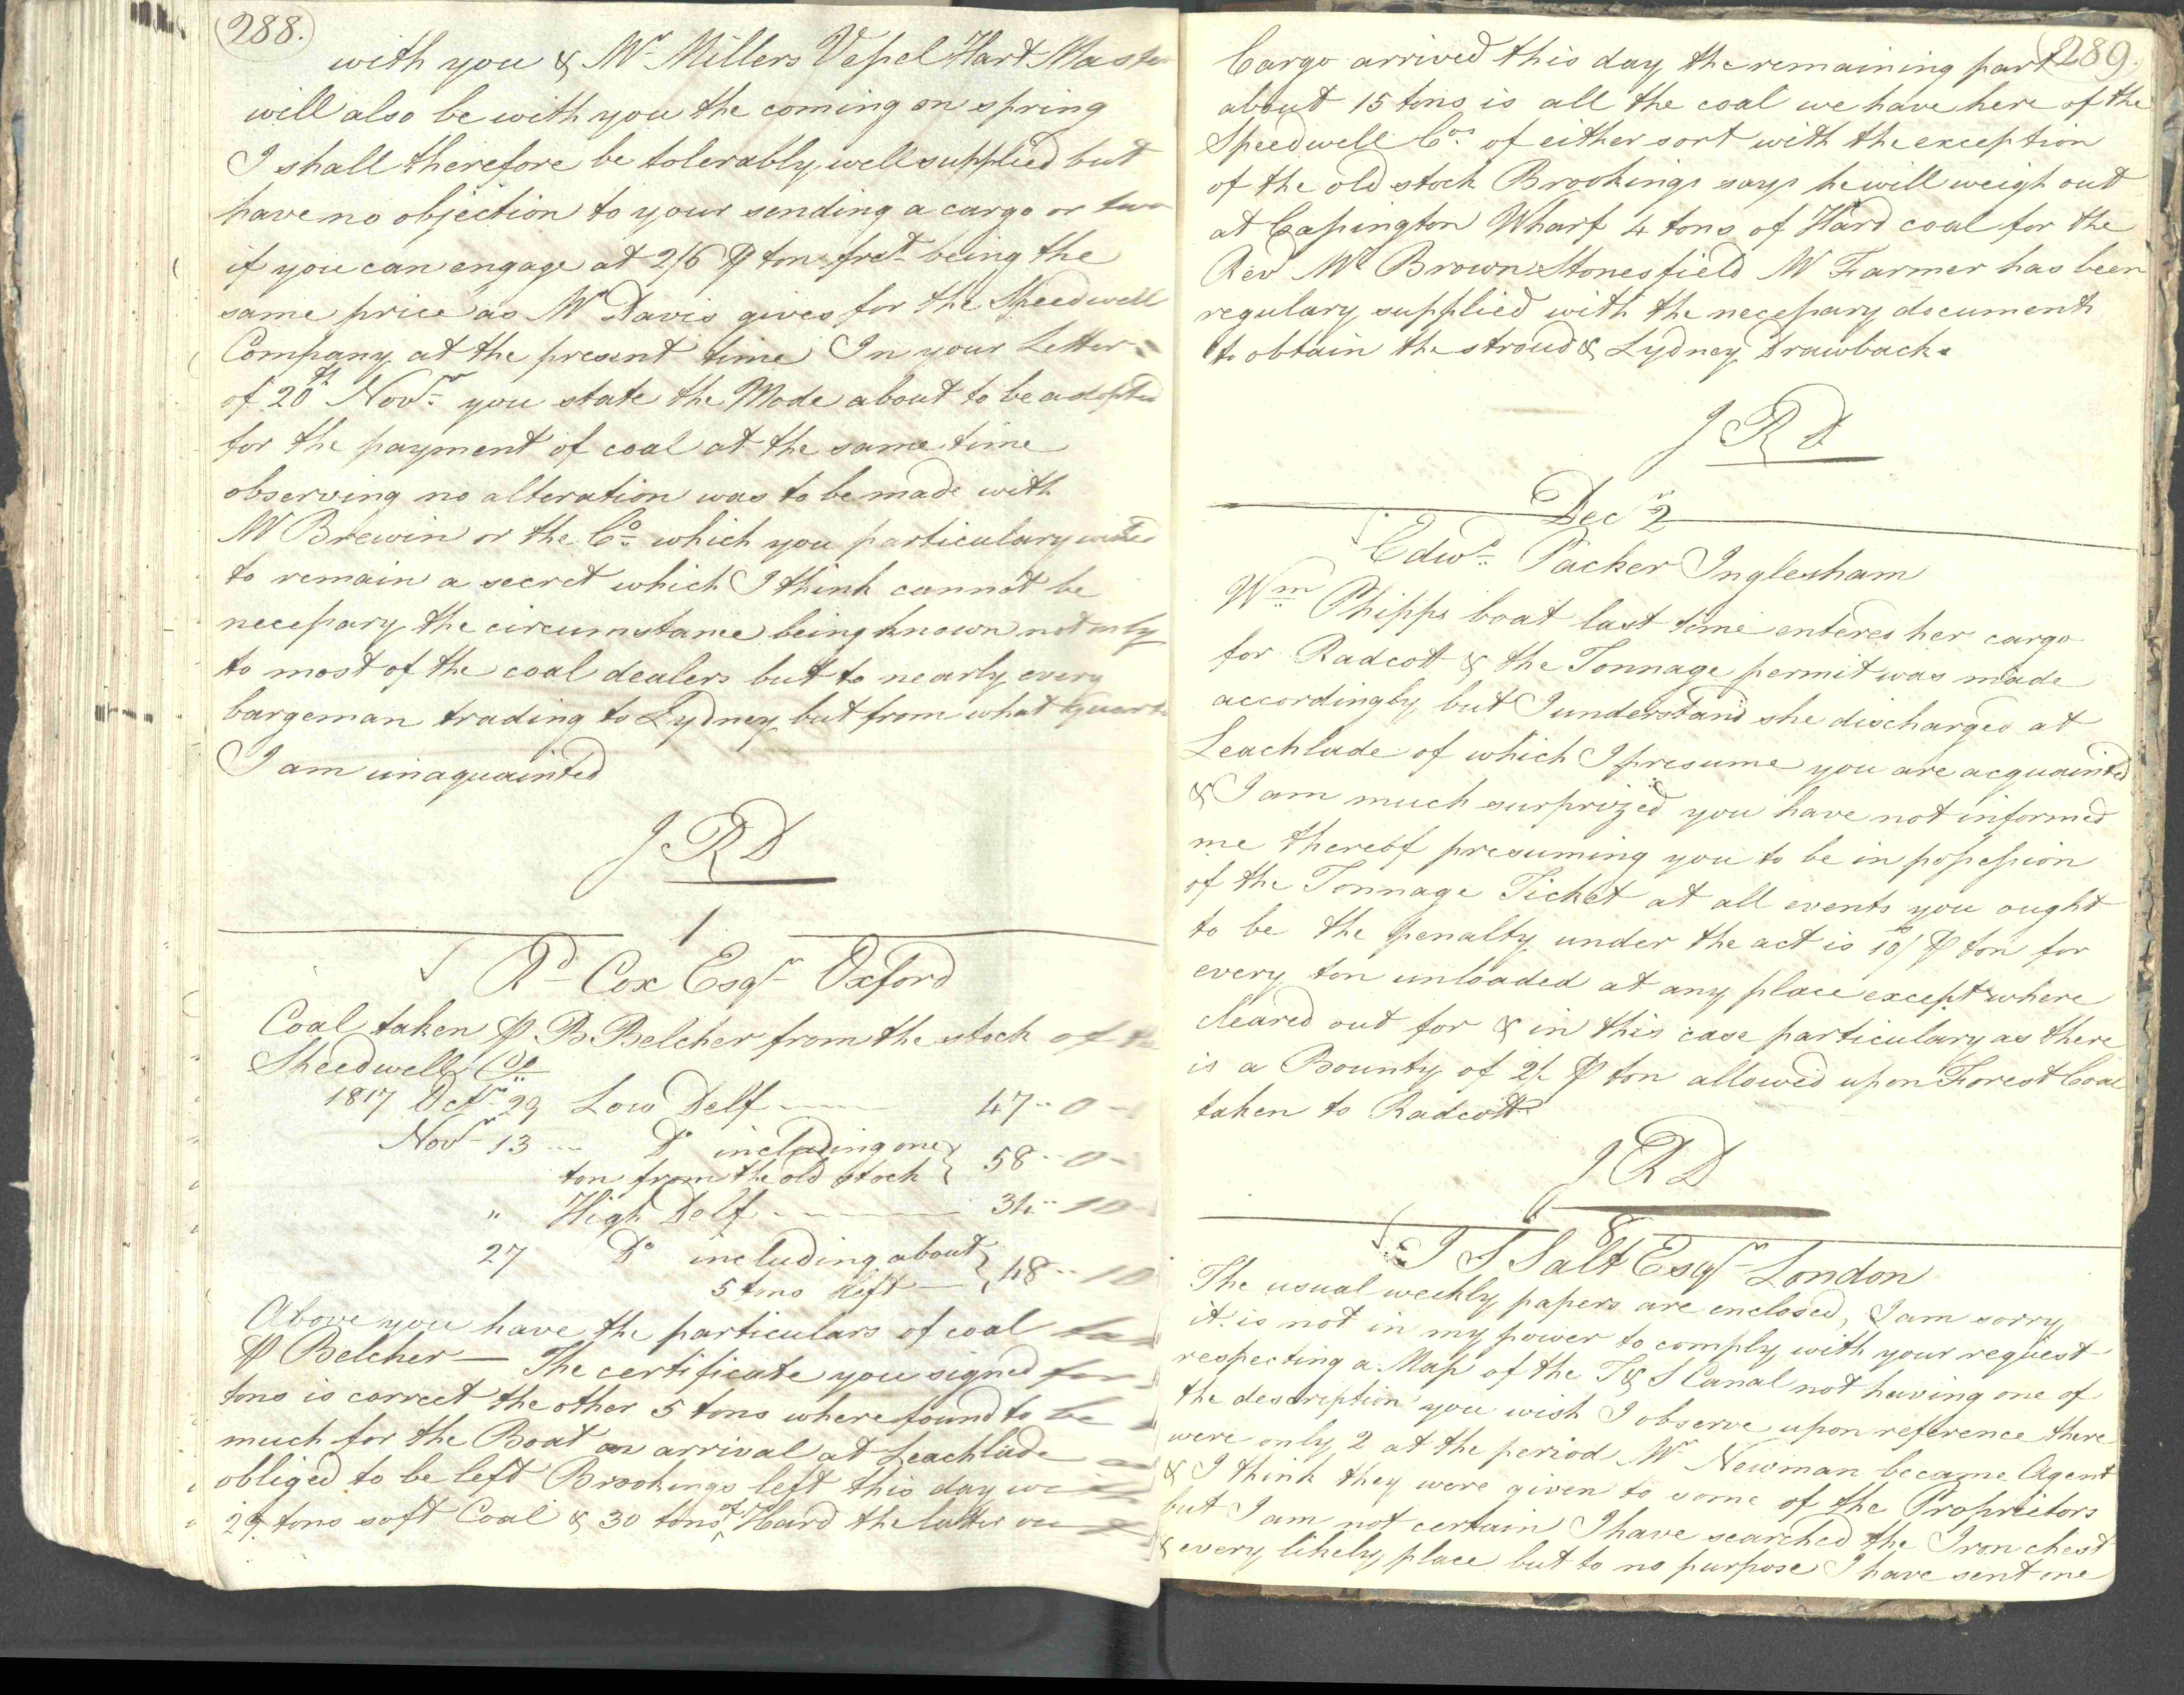 288.
with you & Mr Millers Vessel Hart Master
will also be with you the coming on spring
I shall therefore be tolerably well supplied but
have no objection to your sending a cargo or two
if you can engage at 2/6 ⅌ ton fret being the
same price as Mr Davis gives for the Speedwell
Company at the present time In your Letter
of 20th Novr you state the Mode about to be adopted
for the payment of coal at the same time
observing no alteration was to be made with
Mr Brewin or the Co which you particulary
to remain a secret which I think cannot be
necessary the circumstance being known not only
to most of the coal dealers but to nearly every
bargeman trading to Lydney but from what
I am unaquainted
J R D
1
Rd Cox Esqr Oxford
Coal taken ⅌ B Belcher from the stock of the
Speedwell Co
1817 Octr 29 Low Delf 47 .. 0
Novr 13 Do including one
ton from the old stock } 58 .. 0
" High Delf 34 .. 10
27 Do including about
5 tons left } 48 .. 10
Above you have the particulars of coal
⅌ Belcher — The certificate you signed for
tons is correct the other 5 tons where found to be
much for the Boat on arrival at Leachlade
obliged to be left Brookings left this day with
29 tons soft Coal & 30 tons of Hard the latter
289.
Cargo arrived this day the remaining part
about 15 tons is all the coal we have here of the
Speedwell Cos of either sort with the exception
of the old stock Brookings says he will weigh out
at Cassington Wharf 4 tons of Hard coal for the
Rev Mr Brown Stonesfield Mr Farmer has been
regulary supplied with the necessary document
to obtain the stroud & Lydney Drawback.
J R D
Decr 2
Edwd Packer Inglesham
Wm Phipps boat last time enteres her cargo
for Radcott & the Tonnage permit was made
accordingly but I understand she discharged at
Leachlade of which I presume you are acquainted
& I am much surprized you have not informed
me thereof presuming you to be in possession
of the Tonnage Ticket at all events you ought
to be the penalty under the act is 10/ ⅌ ton for
every ton unloaded at any place except where
cleared out for & in this case particulary as there
is a Bounty of 2/ ⅌ ton allowed upon Forest Coal
taken to Radcott
J R D
8
J S Salt Esqr London
The usual weekly papers are enclosed, I am sorry
it is not in my power to comply with your request
respecting a Map of the T & S Canal not having one of
the description you wish I observe upon reference there
were only 2 at the period Mr Newman became Agent
& I think they were given to some of the Proprietors
but I am not certain I have searched the Iron chest
& every likely place but to no purpose I have sent one